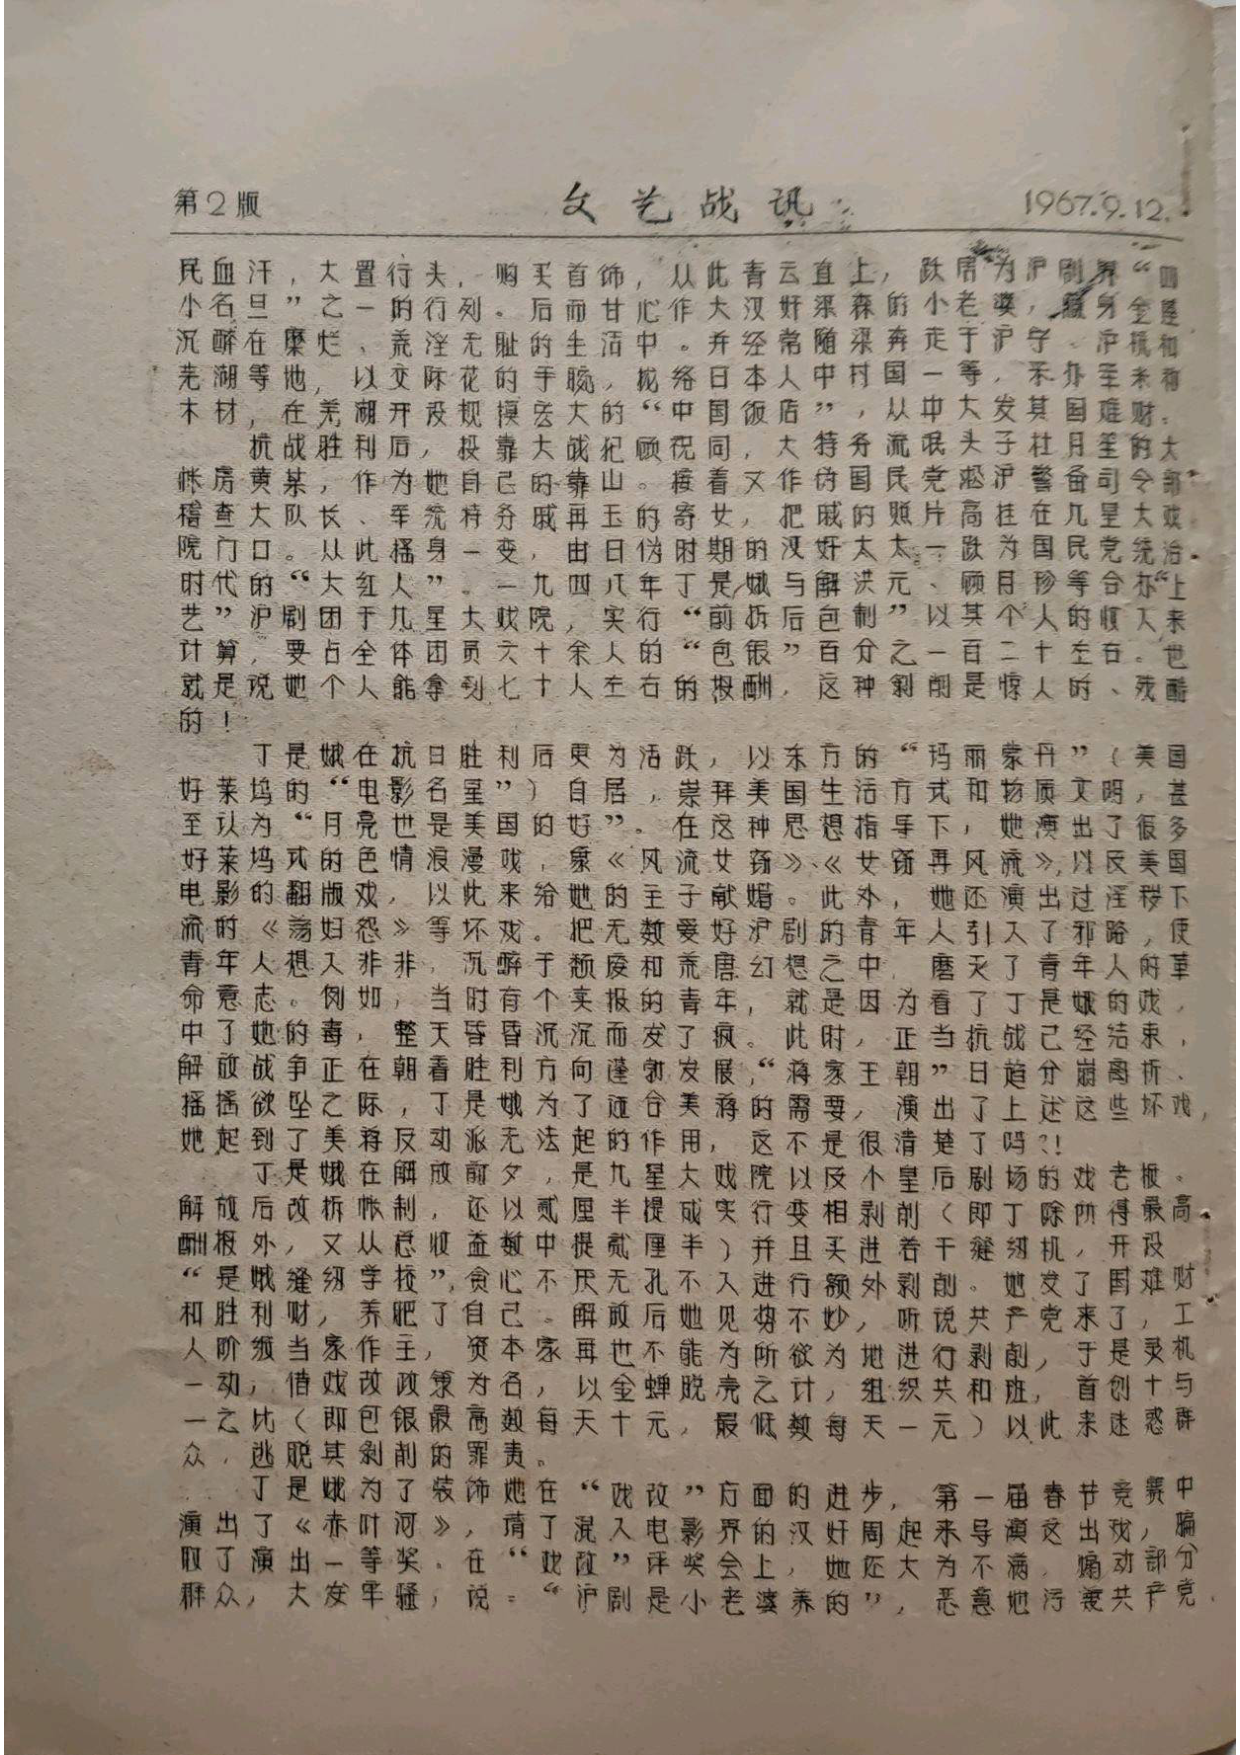 第2版 文艺战讯 1967.9.12.
民血汗，大置行头，购买首饰，从此青云直上，跃居为沪剧界“四
小名旦”之一的行列。后而甘心作大汉奸梁森的小老婆，身全
沉醉在糜烂、荒淫无耻的生活中。并经常随梁奔走于沪宁、沪杭和
芜湖等地，以交际花的手腕，拢络日本人中村国一等，采办至米和
木材，在芜湖开设规模宏大的“中国饭店”，从中大发其国难财。
抗战胜利后，投靠大战犯顾祝同，大特务流氓头子杜月笙的大
帐房黄某，作为她自己的靠山。接着又作伪国民党淞沪警备司令部
稽查大队长、军统特务戚再玉的寄女，把戚的照片高挂在九星大戏
院门口。从此摇身一变，由日伪时期的汉奸太太一跃为国民党统治
时代的“大红人”。一九四八年丁是娥与解洪元、顾月珍等合办“上
艺”沪剧团于九星大戏院，实行“前拆后包制”以其个人的收入来
计算，要占全体团员六十余人的“包银”百分之一百二十左右。也
就是说她个人能拿到七十人左右的报酬，这种剥削是惊人的、残酷
的！
丁是娥在抗日胜利后更为活跃，以东方的“玛丽蒙丹”（美国
好莱坞的“电影名星”）自居，崇拜美国生活方式和物质文明，甚
至认为“月亮也是美国的好”。在这种思想指导下，她演出了很多
好莱坞式的色情浪漫戏，象《风流女窃》、《女窃再风流》，以反美国
电影的翻版戏，以此来给她的主子献媚。此外，她还演出过淫秽下
流的《荡妇怨》等坏戏。把无数爱好沪剧的青年人引入了邪路，使
青年人想入非非，沉醉于颓废和荒唐幻想之中，磨灭了青年人的革
命意志。例如，当时有个卖报的青年，就是因为看了丁是娥的戏，
中了她的毒，整天昏昏沉沉而发了疯。此时，正当抗战已经结束，
解放战争正在朝着胜利方向蓬勃发展，“蒋家王朝”日趋分崩离析、
摇摇欲坠之际，丁是娥为了适合美蒋的需要，演出了上述这些坏戏，
她起到了美蒋反动派无法起的作用，这不是很清楚了吗？！
丁是娥在解放前夕，是九星大戏院以反小皇后剧场的戏老板。
解放后改拆帐制，还以贰厘半提成实行变相剥削（即丁除所得最高
酬报外，又从总收益数中提贰厘半）并且买进若干缝纫机，开设
“是娥缝纫学校”，贪心不厌无孔不入进行额外剥削。她发了国难财
和胜利财，养肥了自己。解放后她见势不妙，听说共产党来了，工
人阶级当家作主，资本家再也不能为所欲为地进行剥削，于是灵机
一动，借戏改政策为名，以金蝉脱壳之计，组织共和班，首创十与
一之比（即包银最高数每天十元，最低数每天一元）以此来迷惑群
众，逃脱其剥削的罪责。
丁是娥为了装饰她在“戏改”方面的进步，第一届春节竞赛中
演出了《赤叶河》，请了混入电影界的汉奸周起来导演这出戏，骗
取了演出一等奖。在“戏改”评奖会上，她还大为不满，煽动部分
群众，大发牢骚，说：“沪剧是小老婆养的”，恶意地污蔑共产党